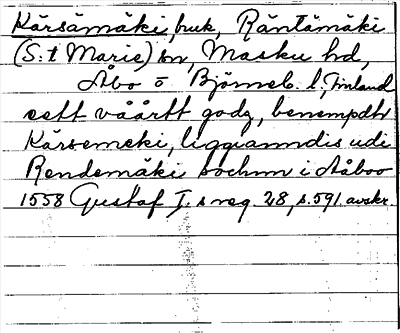 Kärsämäki, bruk, Räntämäki
(S:t Marie) sn, Masku hd,
Åbo o Björneb. l, Finland
eett våårtt godz, benempdt
Kärsemeki, liggianndis udi
Rendemäki sochnn i Aåboo
1558 Gustaf I:s reg. 28, s. 591 avskr.